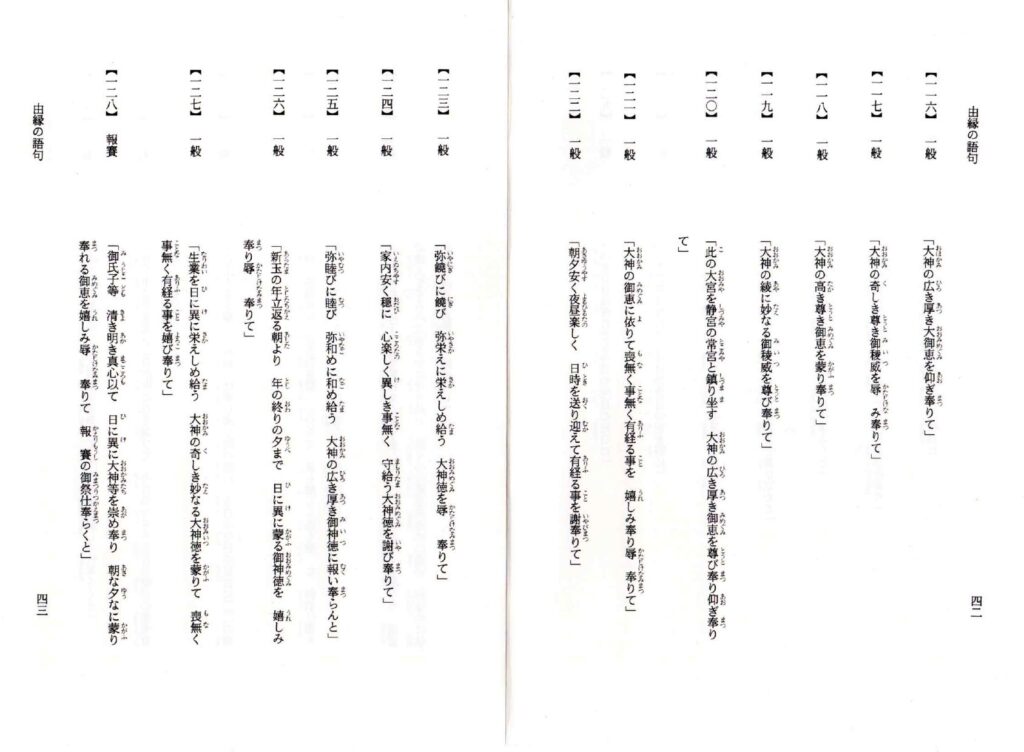 由縁の語句
【一一六】　一般
「大神の広き厚き大御恵を仰ぎ奉りて」
【一一七】　一般
「大神の奇しき尊き御稜威を辱　み奉りて」
【一一八】　一般
「大神の高き尊き御恵を蒙り奉りて」
【一一九】　一般
「大神の綾に妙なる御稜威を尊び奉りて」
【一二〇】　一般
「此の大宮を静宮の常宮と鎮り坐す　大神の広き厚き御恵を尊び奉り仰ぎ奉り
て」
【一二一】　一般
「大神の御恵に依りて喪無く事無く有経る事を　嬉しみ奉り辱　奉りて」
【一二二】　一般
「朝夕安く夜昼楽しく　日時を送り迎えて有経る事を謝奉りて」
四二
【一二三】　一般
「弥饒びに饒び　弥栄えに栄えしめ給う　大神徳を辱　奉りて」
【一二四】　一般
「家内安く穏に　心楽しく異しき事無く　守給う大神徳を謝び奉りて」
【一二五】　一般
「弥睦びに睦び　弥和めに和め給う　大神の広き厚き御神徳に報い奉らんと」
【一二六】　一般
「新玉の年立返る朝より　年の終りの夕まで　日に異に蒙る御神徳を　嬉しみ
奉り辱　奉りて」
【一二七】　一般
「生業を日に異に栄えしめ給う　大神の奇しき妙なる大神徳を蒙りて　喪無く
事無く有経る事を嬉び奉りて」
【一二八】　報賽
「御氏子等　清き明き真心以て　日に異に大神等を崇め奉り　朝な夕なに蒙り
奉れる御恵を嬉しみ辱　奉りて　報　賽の御祭仕奉らくと」
由縁の語句
四三